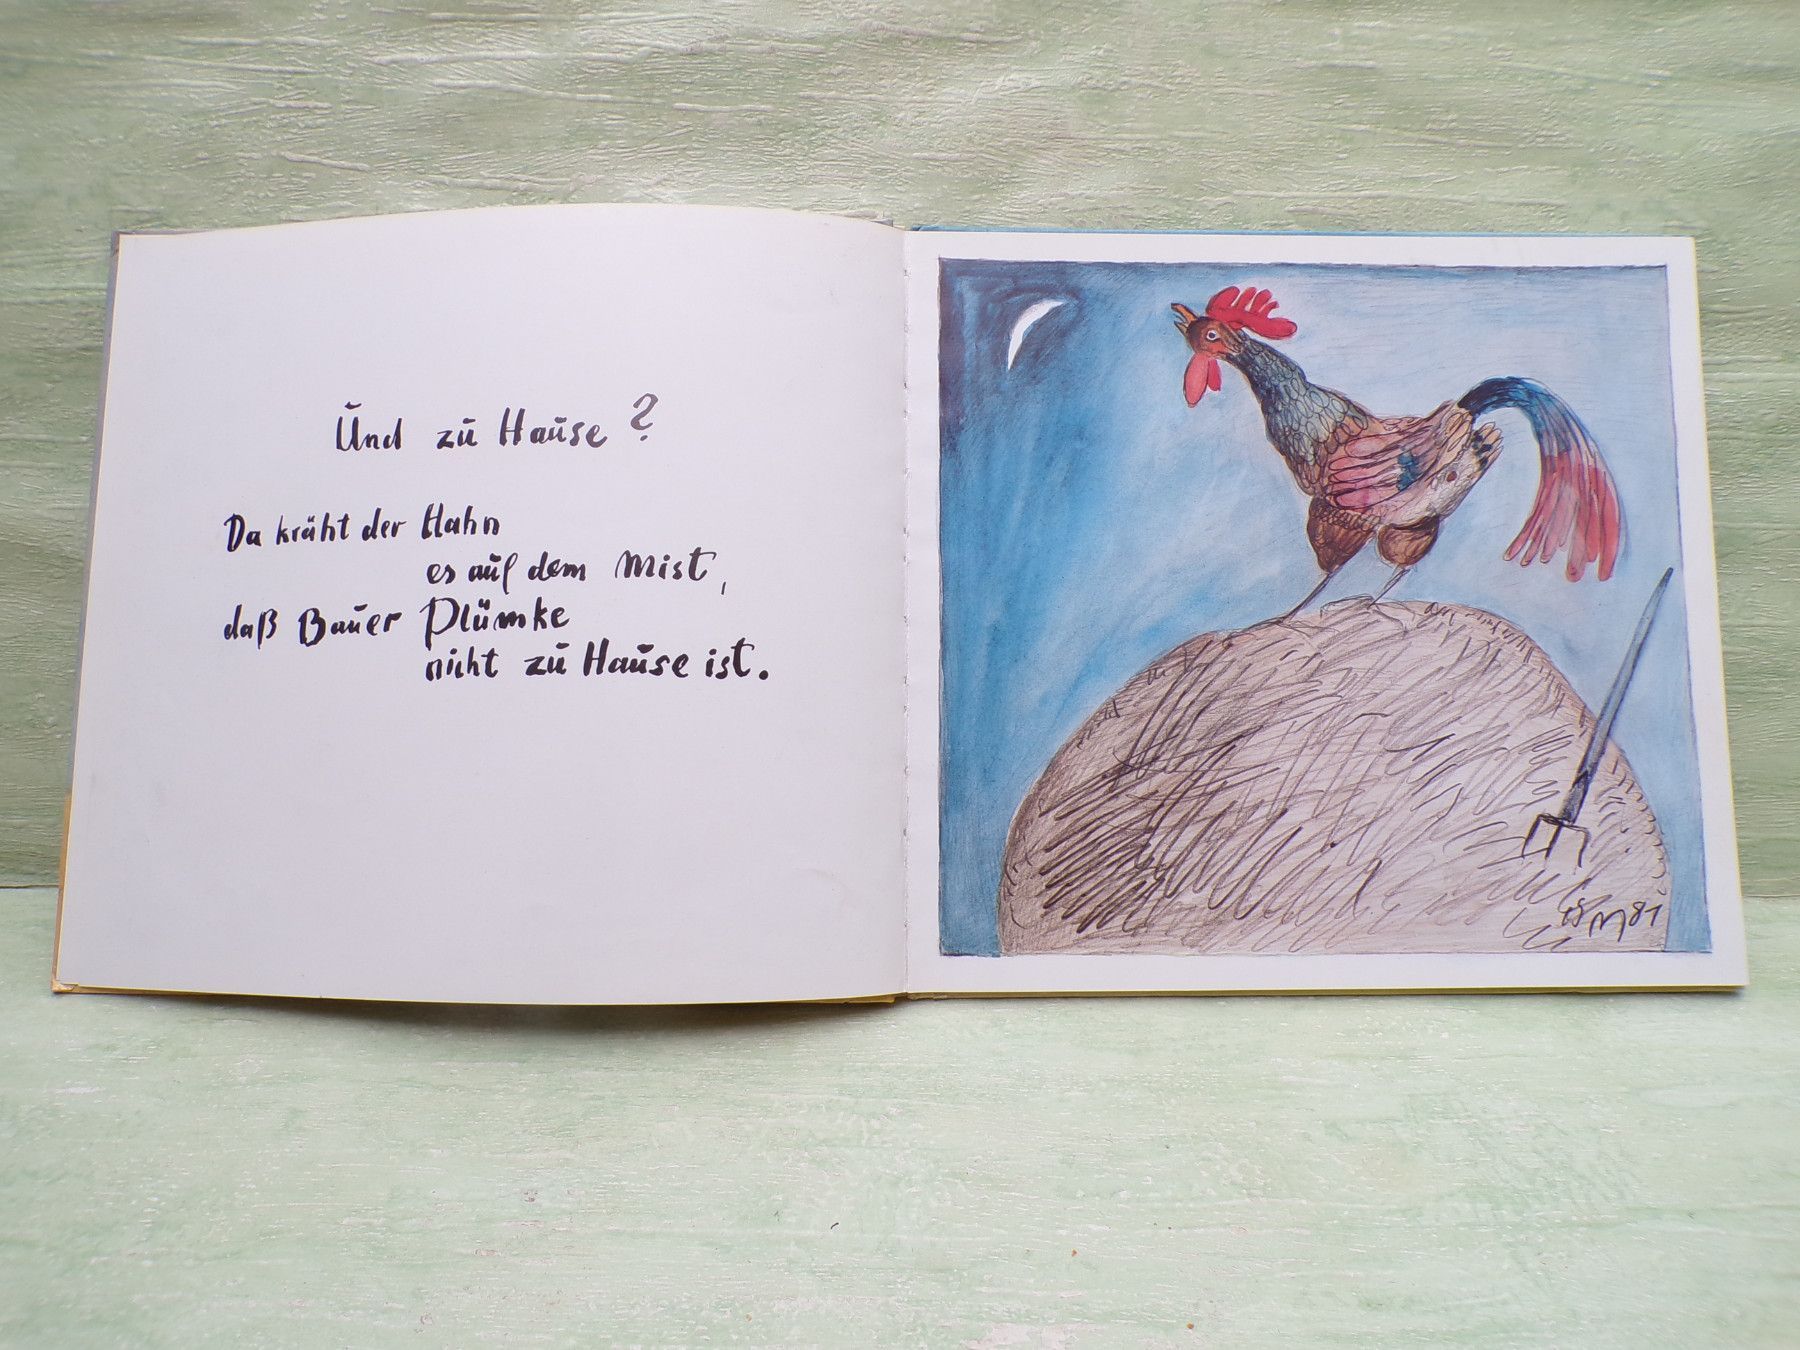 Und zu Hause?
Da kräht der Hahn
es auf dem Mist,
daß Bauer Plümke
nicht zu Hause ist.
81